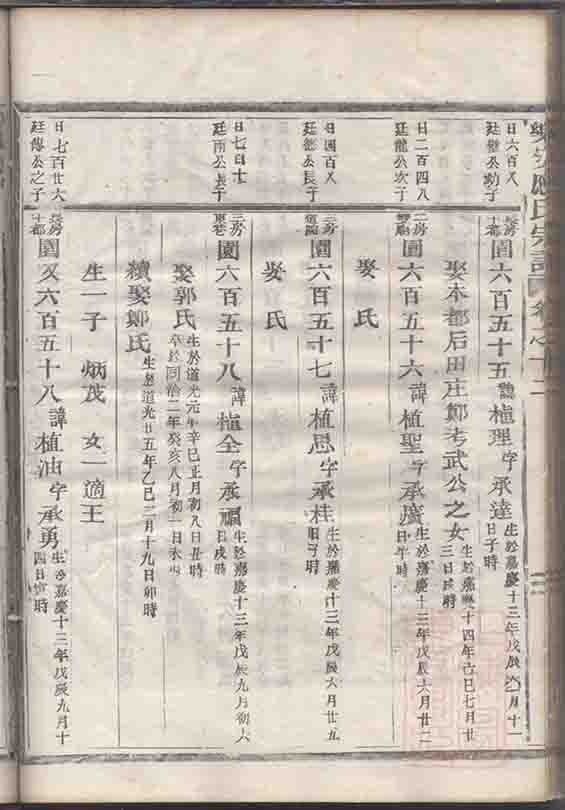 氏宗譜 卷之十二
日六百八
廷 公 子
長房
十都
園六百五十五 諱植理字承達 生於嘉慶十三年戊辰 月十一
日子時
娶本都后田庄鄭考武公之女 生於嘉慶十四年己巳七月廿
三日戌時
日二百四八
廷龍公次子
二房
園六百五十六諱植聖字承廣 生於嘉慶十三年戊辰六月廿二
日午時
娶 氏
日四百八
廷 公長子
二房
園六百五十七諱植恩字承桂 生於嘉慶十三年戊辰六月廿五
日 時
娶 氏
日七百十
廷兩公長子
三房
東巷
園六百五十八諱植全字承 生於嘉慶十三年戊辰九月初六
日戌時
娶郭氏 生於道光元年辛巳正月初八日丑時
卒於同治二年癸亥八月初一日 時
續娶鄭氏 生於道光廿五年乙巳二月十九日卯時
生一子 炳茂 女一適王
日七百廿六
廷傳公之子
長房
十都
園又六百五十八諱植油字承勇 生於嘉慶十三年戊辰九月十
四日 時